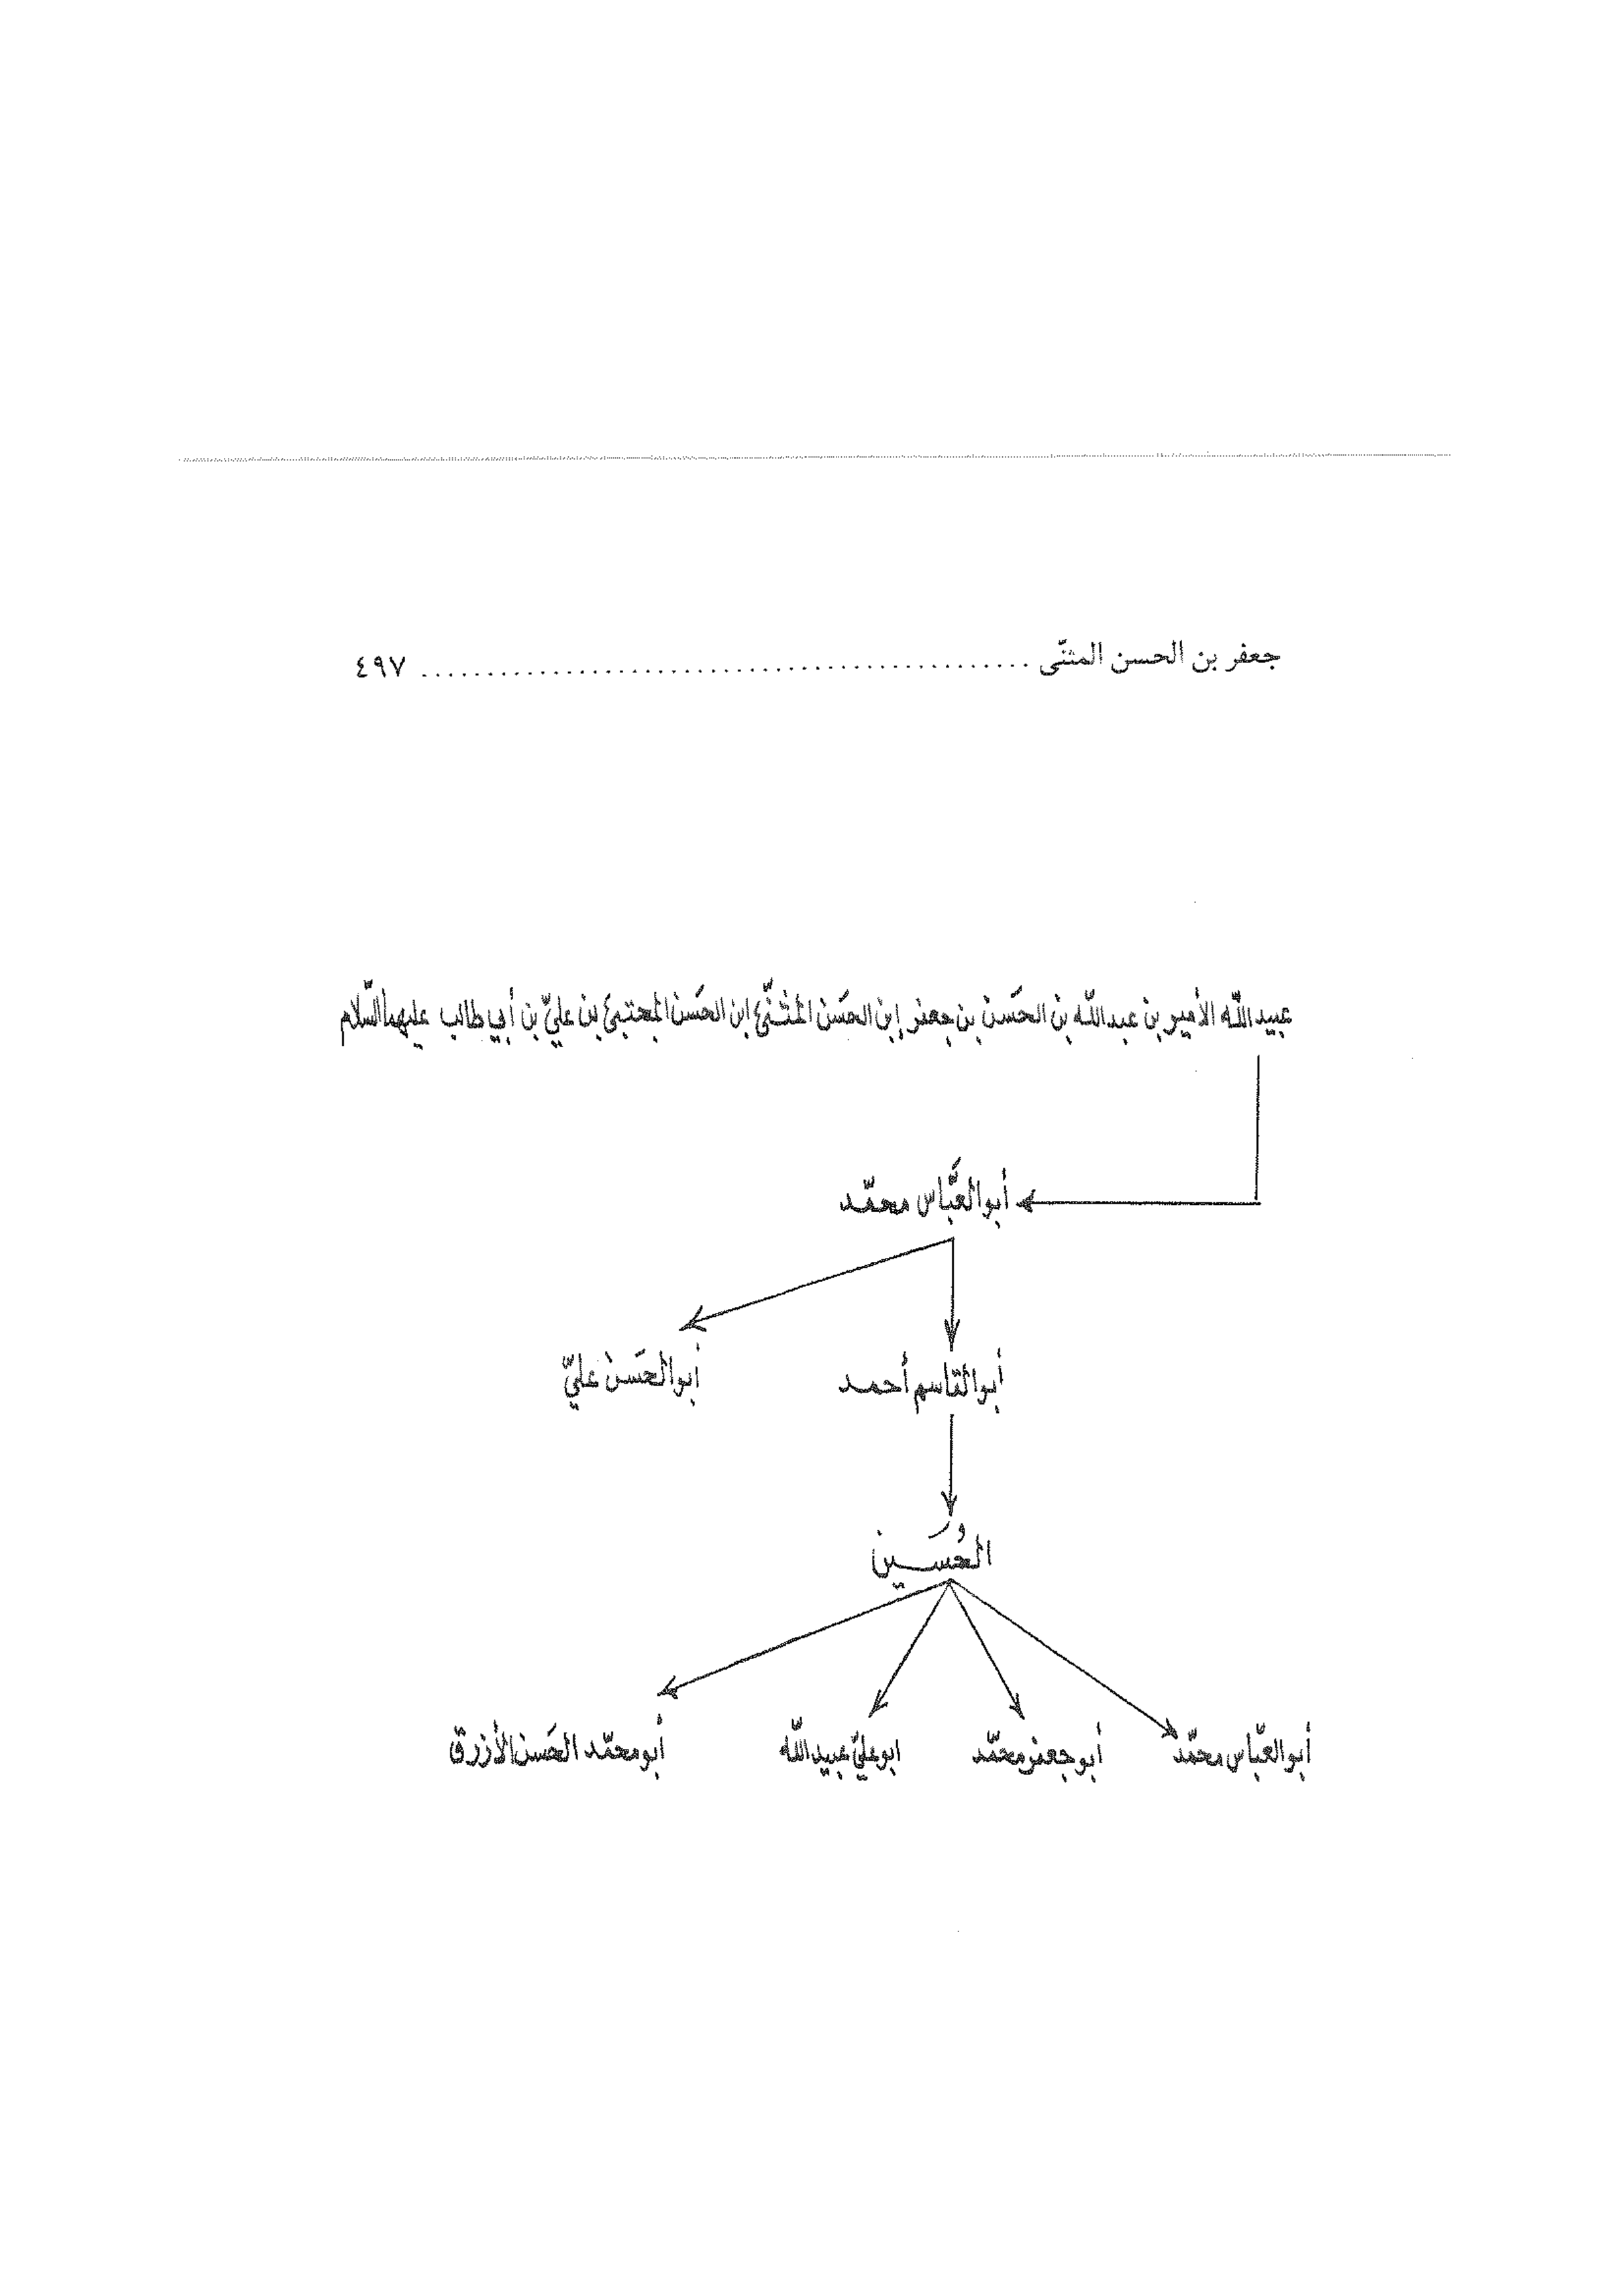 جعفر بن الحسن المثنّى ................................................ ٤٩٧
عبيد الله الأمير بن عبد الله بن الحَسَن بن جعفر إبن الحَسَن المثنّى ابن الحَسَن المجتبى بن عليّ بن أبي طالب عليهما السّلام
أبو العَبَّاس محمّد
أبو القاسم أحمد أبو الحَسَن عليّ
الحُسَين
أبو العبّاس محمّد أبو جعفر محمّد ابو عليّ عبيد الله أبو محمّد الحَسن الأزرق